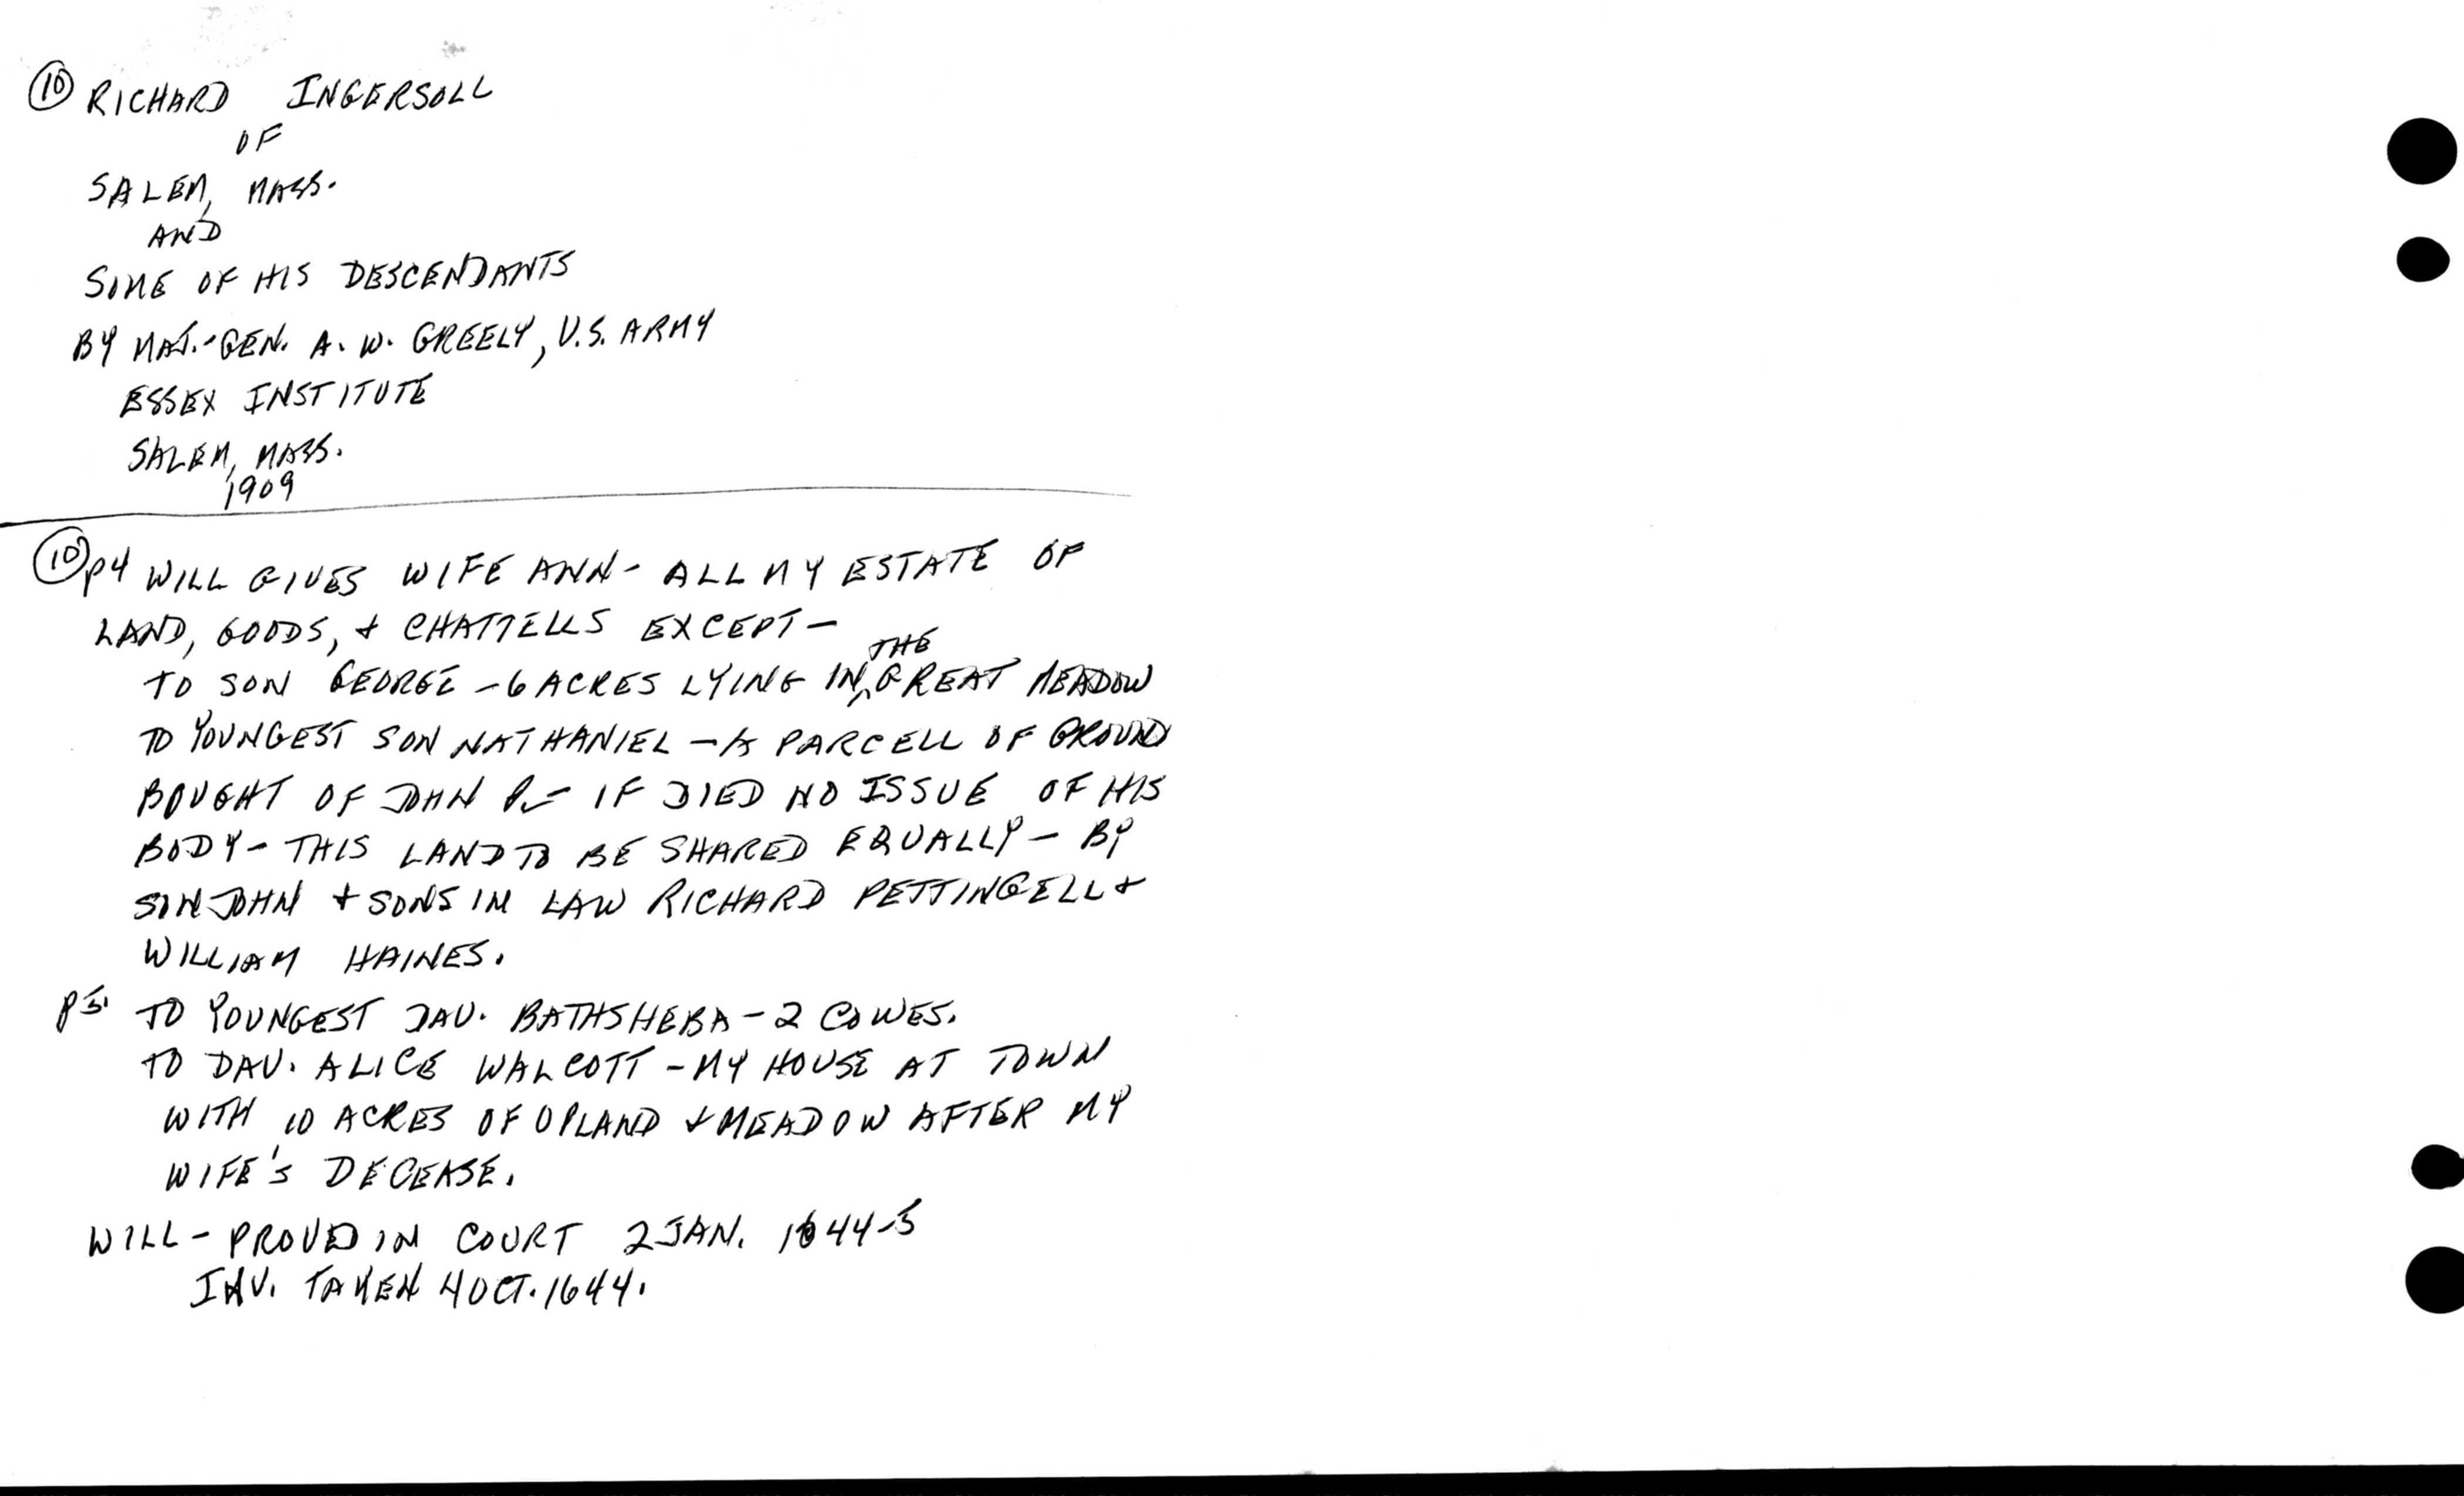 ⑩ RICHARD INGERSOLL
OF
SALEM, MASS.
AND
SOME OF HIS DESCENDANTS
BY MAJ.-GEN. A. W. GREELY, U.S. ARMY
ESSEX INSTITUTE
SALEM, MASS.
1909
⑩ P4 WILL GIVES WIFE ANN - ALL MY ESTATE OF
LAND, GOODS, + CHATTELLS EXCEPT -
TO SON GEORGE - 6 ACRES LYING IN THE GREAT MEADOW
TO YOUNGEST SON NATHANIEL - A PARCELL OF GROUND
BOUGHT OF JOHN P. - IF DIED NO ISSUE OF HIS
BODY - THIS LAND TO BE SHARED EQUALLY - BY
SON JOHN + SONS IN LAW RICHARD PETTINGELL +
WILLIAM HAINES.
P5. TO YOUNGEST DAU. BATHSHEBA - 2 COWES.
TO DAU. ALICE WALCOTT - MY HOUSE AT TOWN
WITH 10 ACRES OF UPLAND + MEADOW AFTER MY
WIFE'S DECEASE.
WILL - PROVED IN COURT 2 JAN. 1644-5
INV. TAKEN 4 OCT. 1644.